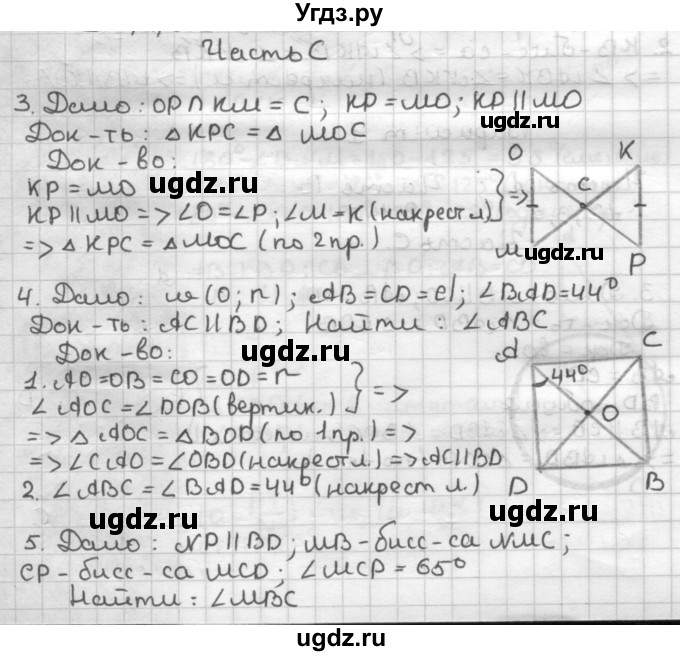 Угдз.ру
Часть C
3. Дано: OP∩KM = C; KP = MO; KP ∥ MO
Док-ть: △KPC = △MOC
Док-во:
KP = MO
KP ∥ MO => ∠O = ∠P; ∠M = K (накрест л) } =>
=> △KPC = △MOC (по 2 пр.)
O K
C
M P
4. Дано: (O; r); AB = CD = d; ∠BAD = 44°
Док-ть: AC ∥ BD; Найти: ∠ABC
Док-во:
1. AO = OB = CO = OD = r
∠AOC = ∠DOB (вертик.) } =>
=> △AOC = △BOD (по 1 пр.) =>
=> ∠CAO = ∠OBD (накрест л.) => AC ∥ BD
2. ∠ABC = ∠BAD = 44° (накрест л.)
A C
44°
O
D B
5. Дано: NP ∥ BD; MB - бисс-са NMC;
CP - бисс-са MCD; ∠MCP = 65°
Найти: ∠MBC
ugdz.ru
ugdz.ru
ugdz.ru
ugdz.ru
ugdz.ru
ugdz.ru
ugdz.ru
ugdz.ru
ugdz.ru
ugdz.ru
ugdz.ru